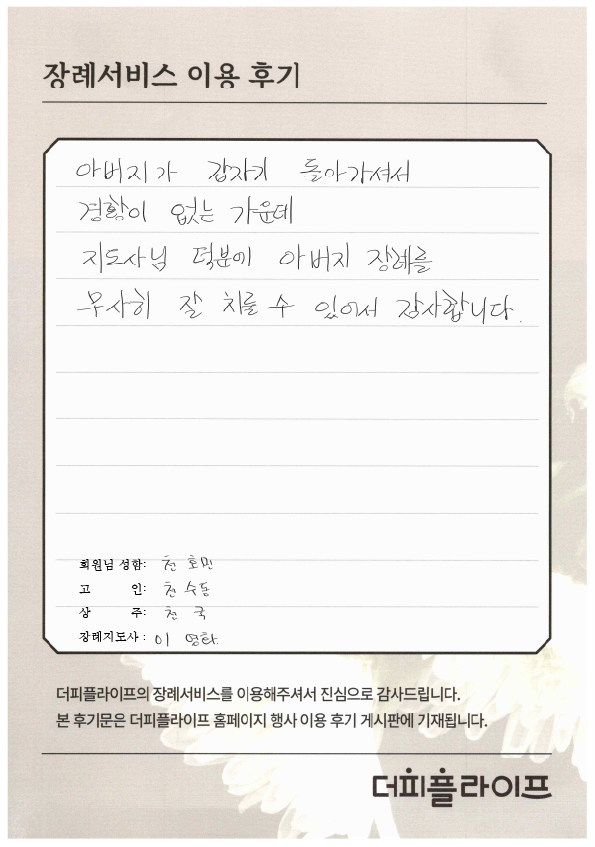 장례서비스 이용 후기
아버지가 갑자기 돌아가셔서
경황이 없는 가운데
지도사님 덕분에 아버지 장례를
무사히 잘 치룰 수 있어서 감사합니다.
회원님 성함: 천 호민
고 인: 천 수동
상 주: 천 국
장례지도사: 이 영화
더피플라이프의 장례서비스를 이용해주셔서 진심으로 감사드립니다.
본 후기문은 더피플라이프 홈페이지 행사 이용 후기 게시판에 기재됩니다.
더피플라이프